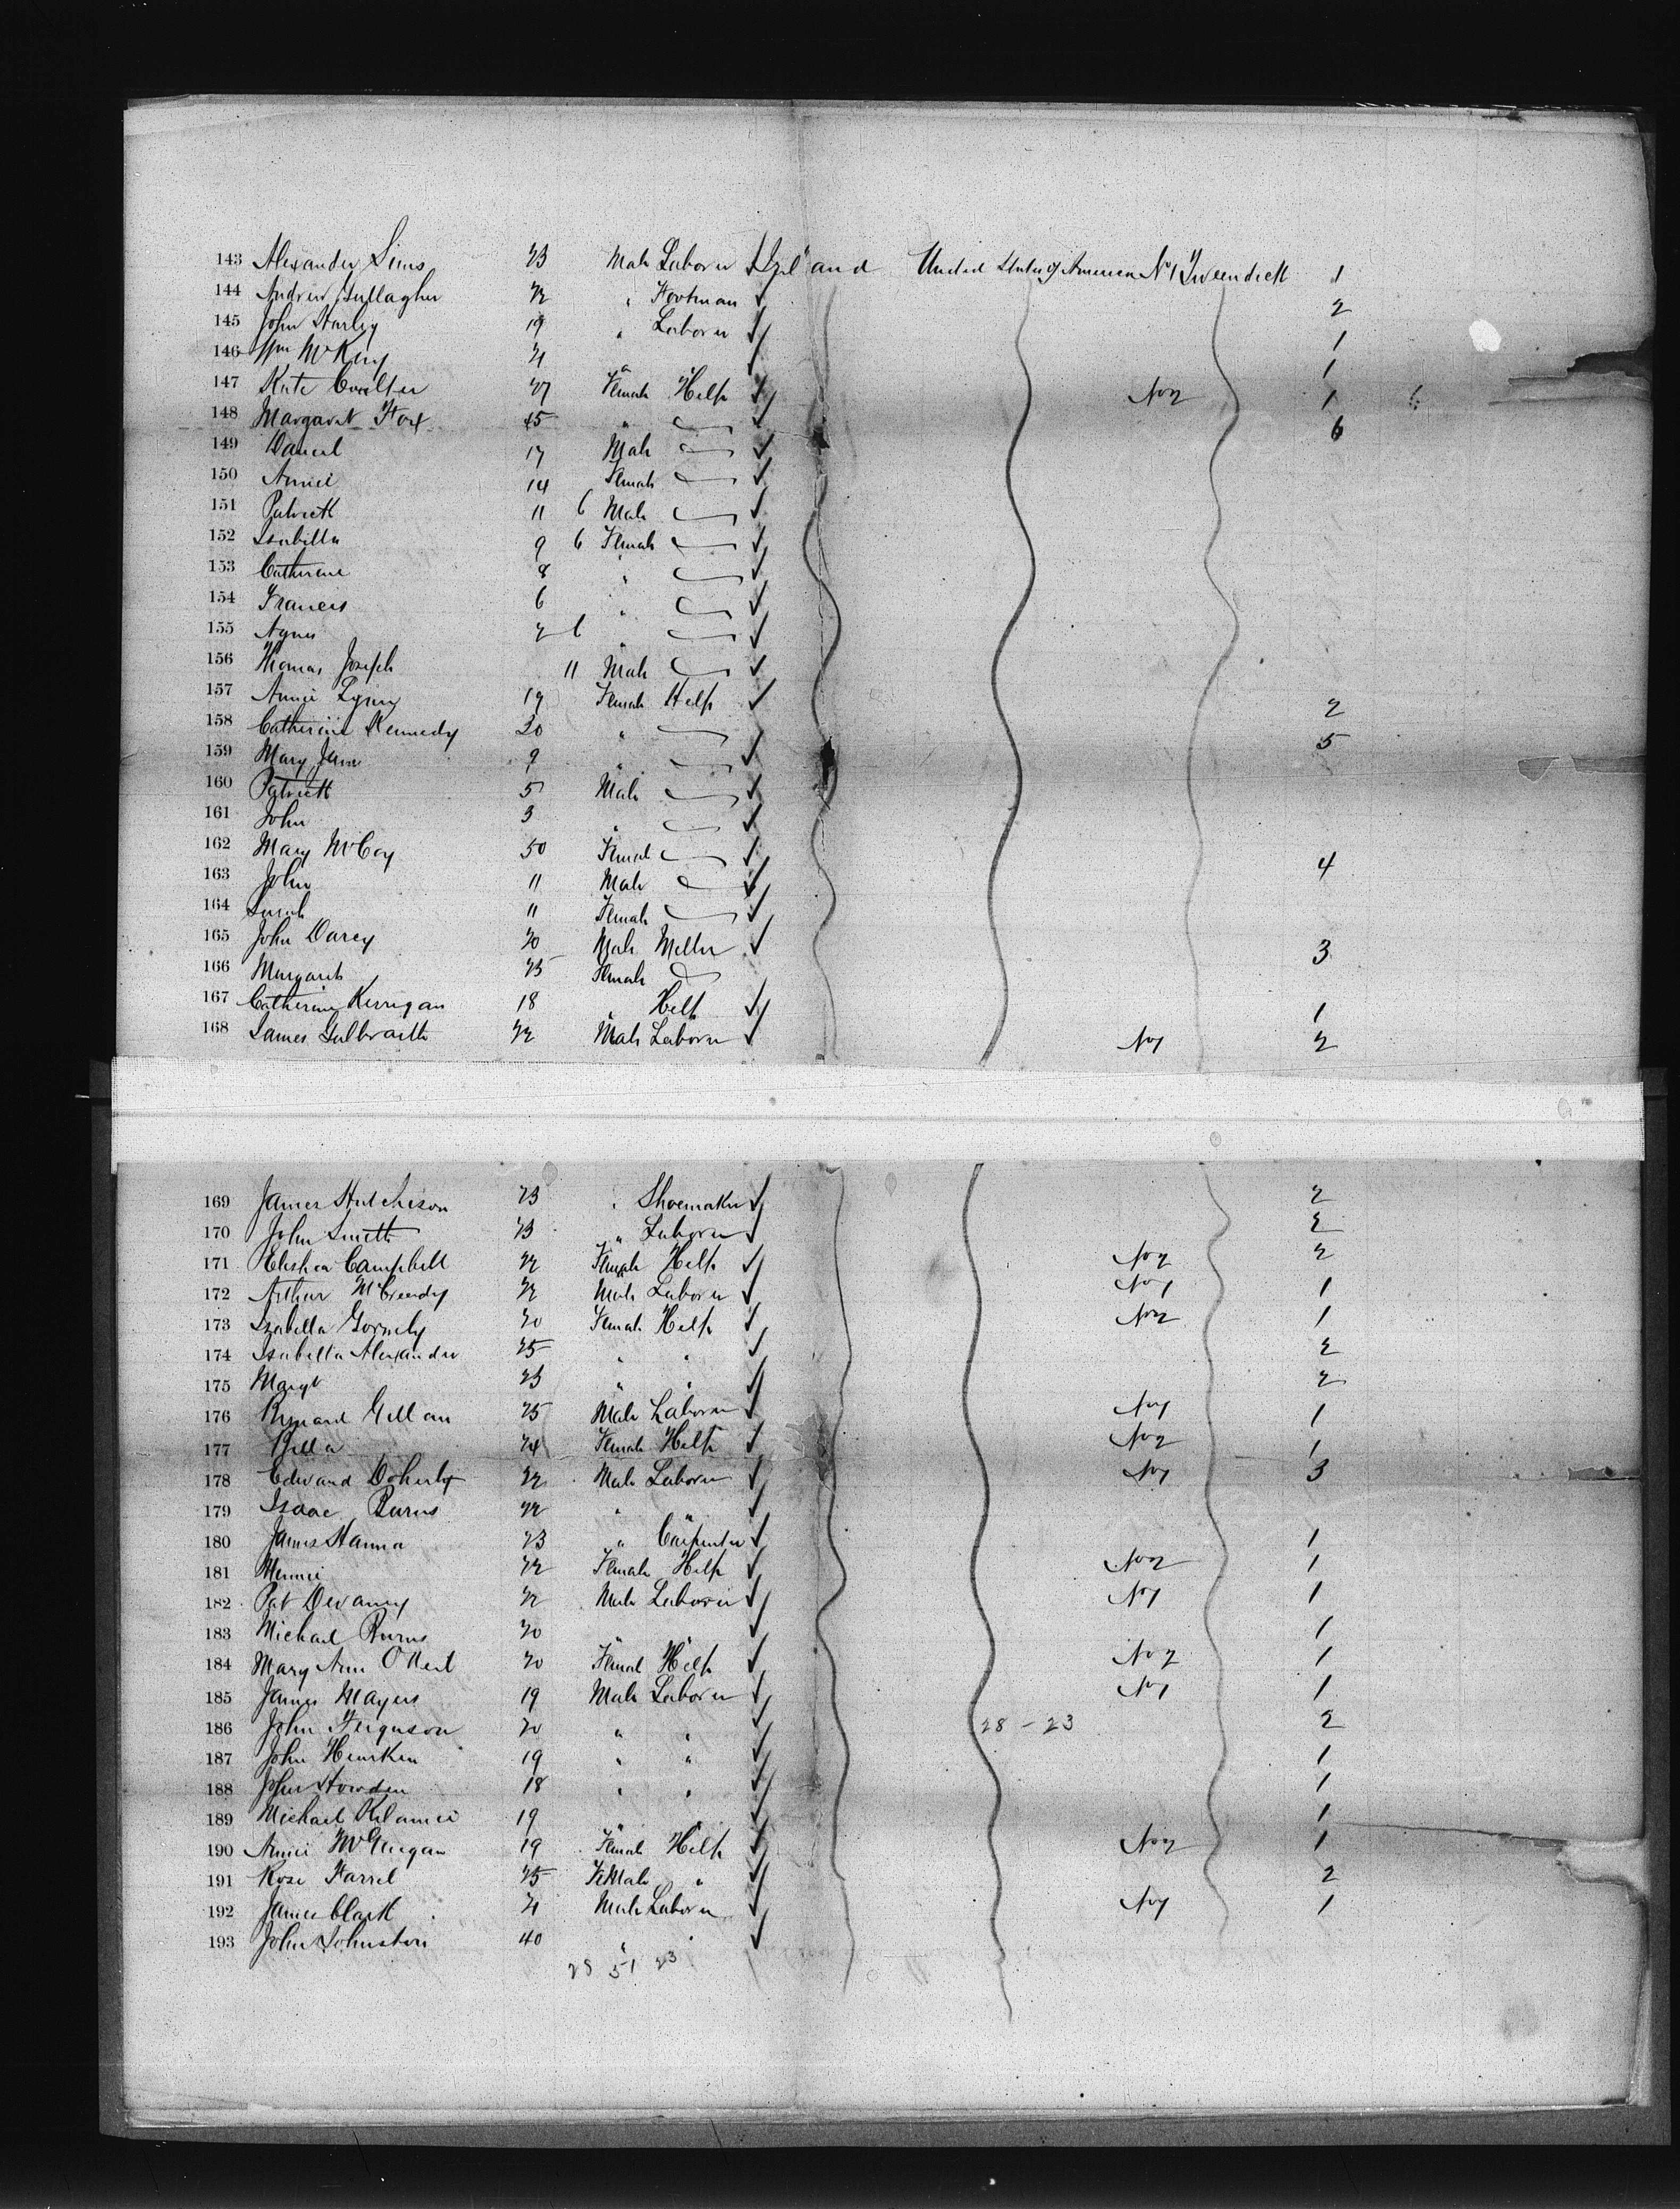 143 Alexander Sims 23 Male Laborer Ireland United States of America No 1 Tweendeck 1
144 Andrew Gallagher 22 " Footman 2
145 John Harley 19 " Laborer 1
146 Wm McKay 21 " " 1
147 Kate Coulter 27 Female Help No 2 1 6
148 Margaret Fox 45 " 6
149 Daniel 17 Male
150 Annie 14 Female
151 Patrick 11 6 Male
152 Isabella 9 6 Female
153 Catherine 8 "
154 Francis 6 "
155 Agnes 2 6 "
156 Thomas Joseph 11 Male
157 Annie 19 Female Help 2
158 Catherine Kennedy 30 " 5
159 Mary Jane 9 "
160 Patrick 5 Male
161 John 3 "
162 Mary McCoy 50 Female 4
163 John 11 Male
164 Sarah 11 Female
165 John Darcy 20 Male Miller 3
166 Margaret 25 Female
167 Catherine Kerrigan 18 " Help 1
168 James Galbraith 22 Male Laborer No 1 2
169 James Hutcheson 23 " Shoemaker 2
170 John Smith 23 " Laborer 2
171 Campbell 22 Female Help No 2 2
172 Arthur McCreedy 22 Male Laborer No 1 1
173 Izabella Gormely 20 Female Help No 2 1
174 Isabella Alexander 25 " " 2
175 Margt 23 " " 2
176 Bernard Gillan 25 Male Laborer No 1 1
177 Bella 24 Female Help No 2 1
178 Edward Doherty 22 Male Laborer No 1 3
179 Isaac Burns 22 " "
180 James Hanna 23 " Carpenter 1
181 Minnie 22 Female Help No 2 1
182 Pat Devanny 22 Male Laborer No 1 1
183 Michael Burns 20 " " 1
184 Mary Ann O'Neil 20 Female Help No 2 1
185 James Mayers 19 Male Laborer No 1 1
186 John Ferguson 20 " " 28 - 23 2
187 John 19 " " 1
188 John Howden 18 " " 1
189 Michael 19 " " 1
190 Annie McGuigan 19 Female Help No 2 1
191 Rose Farrel 25 FeMale " 2
192 James Clark 21 Male Laborer No 1 1
193 John Johnston 40 " "
28 51 23